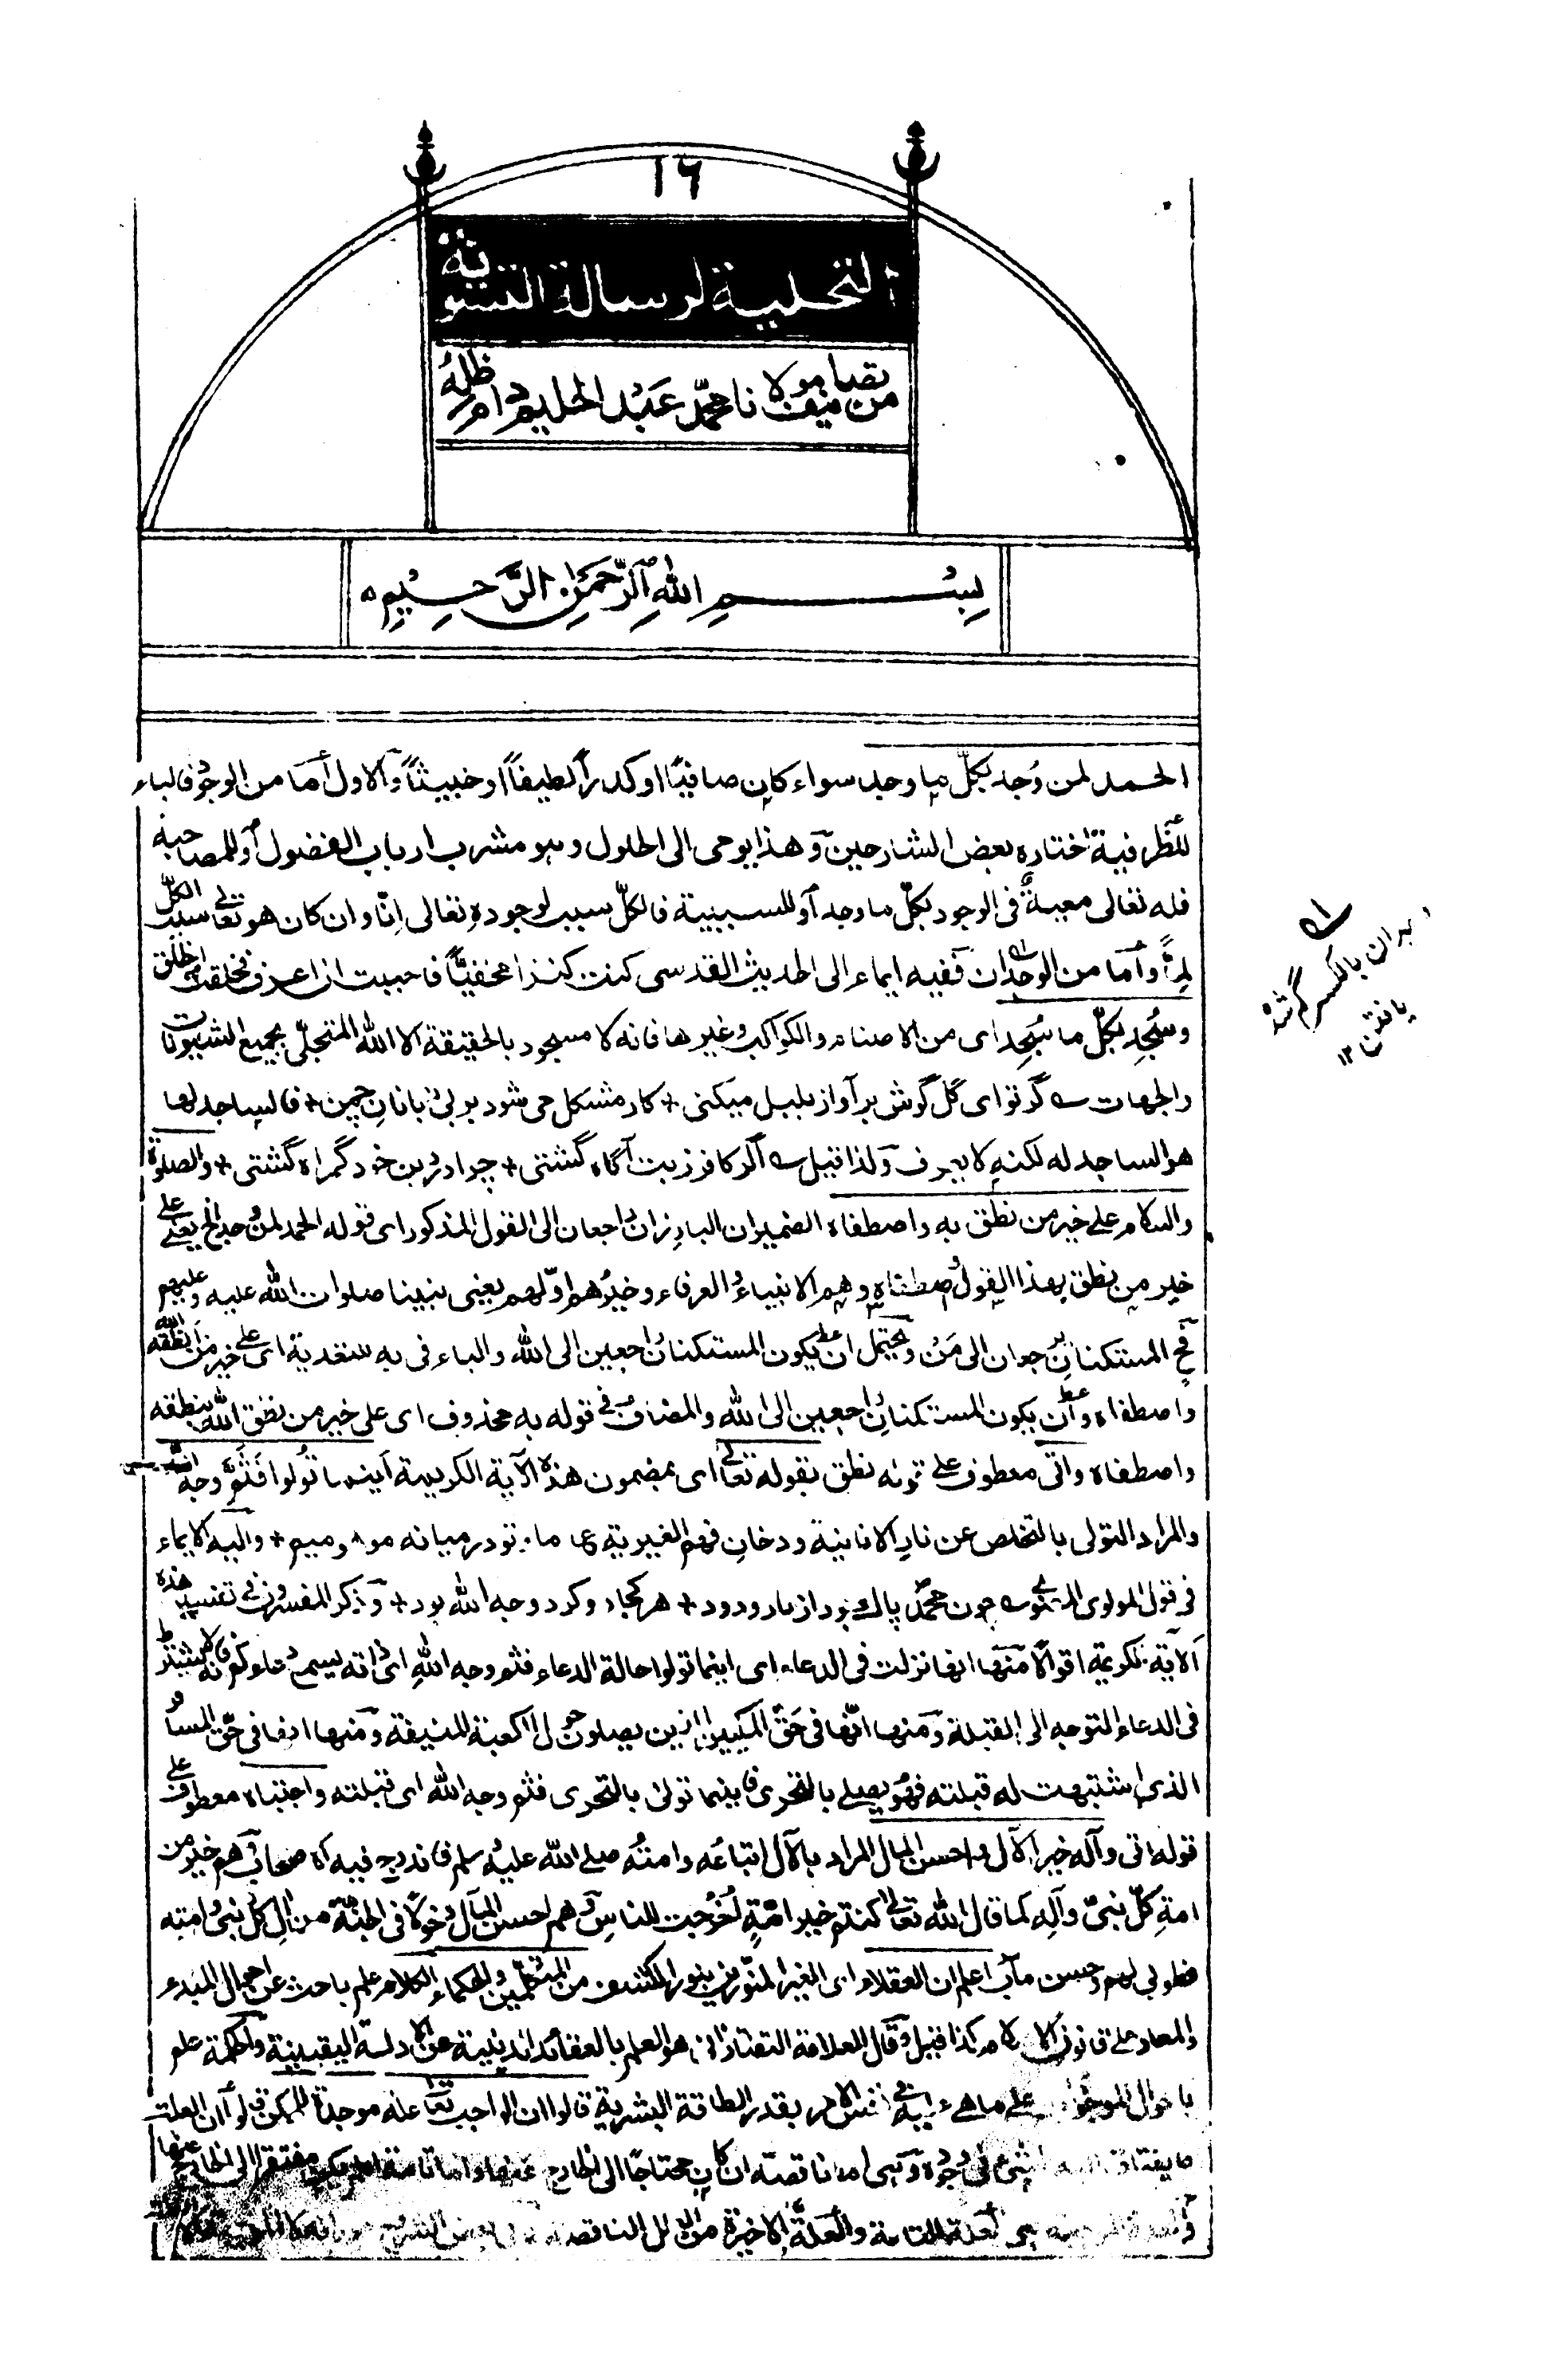 ١٦
التحلية لرسالة التسوية
من تصانيف مولانا محمّد عَبْد الحليم دام ظله
بِسْمِ اللهِ الرَّحْمٰنِ الرَّحِيْمِ
الحمد لمن وُجد بكلّ ما وجد سواء كان صافيًا او كدراً لطيفاً او خبيثاً والاول أما من الوجود فالباء
للظرفية اختاره بعض الشارحين وهذا يوحى الى الحلول وهو مشرب ارباب الفضول او للمصاحبة
فله تعالى معية فى الوجود بكلّ ما وجد او للسببية فالكلّ سبب لوجوده تعالى اِنًّا وان كان هو تعالى سبب الكلّ
لِمًّا وأما من الوجدان ففيه ايماء الى الحديث القدسى كنت كنزا مخفيًّا فاحببت ان اعرف فخلقت الخلق
وسُجِد بكلّ ما سُجِد اى من الاصنام والكواكب وغيرها فانه لا مسجود بالحقيقة الا الله المتجلّى بجميع الشيونات
والجهات ـه گر تو اى گل گوش بر آواز بلبل ميكنى + كار مشكل مى شود بر بى زبانانِ چمن + فالساجد لها
هو الساجد له لكنه لا يعرف ولذا قيل ـه اگر كافر ز بت آگاه گشتى + چرا در دين خود گمراه گشتى + والصلوة
والسلام على خير من نطق به واصطفاه الضميران البارزان راجعان الى القول المذكور اى قوله الحمد لمن وجد الخ يعنى على
خير من نطق بهذا القول واصطفاه وهم الانبياءُ والعرفاء وخيرُهم اوّلهم يعنى نبينا صلوات الله عليه وعليهم
فح المستكنان يرجعان الى مَنْ ويحتمل ان يكون المستكنان راجعين الى الله والباء فى به للتعدية اى على خير من انطقه الله
واصطفاه وان يكون المستكنان راجعين الى الله والمضاف فى قوله به محذوف اى على خير من نطق الله بنطقه
واصطفاه واتى معطوف على قوله نطق بقوله تعالى اى بمضمون هذه الآية الكريمة اَينما تُولوا فَثَمَّ وجه الله
والمراد التولى بالتخلص عن نار الانانية ودخان فهم الغيرية ع ما و تو درميانه مو و ميم + واليه الايماء
فى قول المولوى المعنوى ـه چون محمّد پاك بود از نار و دود + هر كجا رو كرد وجه الله بود + وذكر المفسرون فى تفسير هذه
الآية الكريمة اقوالاً منها انها نزلت فى الدعاء اى اينما تولوا حالة الدعاء فثم وجه الله اى ذاته يسمع دعاءكم فانه لا يشترط
فى الدعاء التوجه الى القبلة ومنها انّها فى حَقّ المكيين الذين يصلون حول الكعبة المنيفة ومنها انها فى حقّ المسافر
الذى اشتبهت له قبلته فهو يصلى بالتحرى فاينما تولى بالتحرى فثم وجه الله اى قبلته واجتباه معطوف على
قوله اتى وآله خير الآل واحسن المآل المراد بالآل اتباعه وامته صلى الله عليه وسلم فاندرج فيه الاصحاب وهم خير من
امةِ كلّ نبىّ وآلِه كما قال الله تعالى كنتم خير امّةٍ اُخرجت للناس وهم احسن المآل دخولاً فى الجنّة من آل كل نبى وامته
فطوبى لهم وحسن مآب اعلم ان العقلاء اى الغير المنوّرين بنور الكشف من المتكلّمين والحكماء الكلام علم باحث عن احوال المبدء
والمعاد على قانون الاسلام كذا قيل وقال العلامة التفتازانى هو العلم بالعقائد الدينية عن الادلة اليقينية والحكمة علم
باحوال الموجودات على ما هى عليه فى نفس الامر بقدر الطاقة البشرية قالوا ان الواجب تعالى علة موجدة للممكن قالوا ان العلة
ما يفتقر اليه الشىء فى وجوده وهى اما ناقصة ان كان محتاجًا الى الخارج عنها واما تامة ان لم يكن مفتقرا الى الخارج عنها
هى العلة التامة والعلة الاخيرة من العلل الناقصة
ـه
وجدان بالكسر گم شده
يافتن ١٢